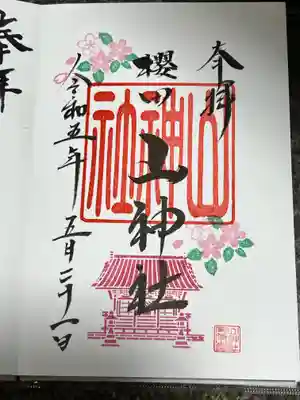 奉拝
櫻田山神社
山神社
令和五年五月二十一日
奉拝